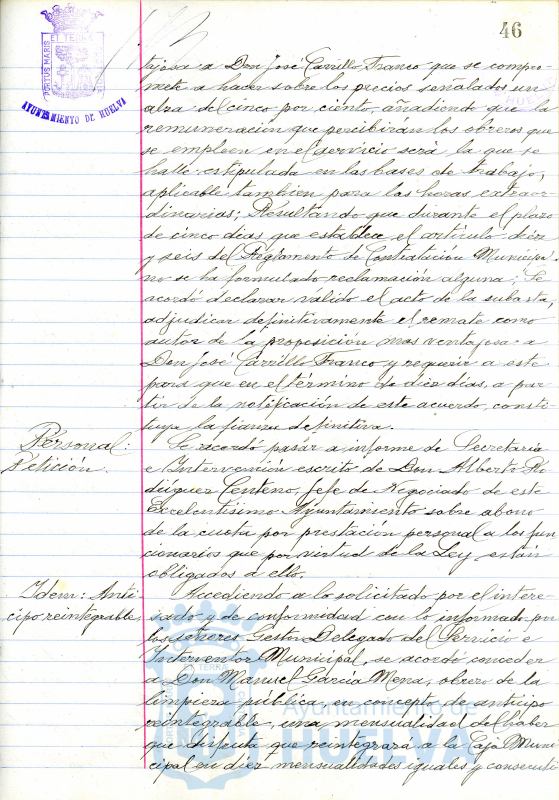 46
PORTUS MARIS
ET TERRÆ
AYUNTAMIENTO DE HUELVA
tajosa a Don José Carrillo Franco que se compro-
mete a hacer sobre los precios señalados un
alza del cinco por ciento, añadiendo que la
remuneración que percibirán los obreros que
se empleen en el servicio será la que se
halle estipulada en las bases de trabajo,
aplicable tambien para las horas extraor-
dinarias; Resultando que durante el plazo
de cinco dias que establece el artículo diez
y seis del Reglamento de Contratación Municipal
no se ha formulado reclamación alguna; Se
acordó declarar valido el acto de la subasta,
adjudicar definitivamente el remate como
autor de la proposición mas ventajosa a
Don José Carrillo Franco y requerir a este
para que en el término de diez dias, a par-
tir de la notificación de este acuerdo, consti-
tuya la fianza definitiva.
Personal:
Petición.
Se acordó pasar a informe de Secretaría
e Intervención escrito de Don Alberto Ro-
dríguez Centeno, Jefe de Negociado de este
Excelentísimo Ayuntamiento sobre abono
de la cuota por prestación personal a los fun-
cionarios que por virtud de la Ley están
obligados a ello.
Idem: Anti-
cipo reintegrable
Accediendo a lo solicitado por el intere-
sado y de conformidad con lo informado por
los señores Gestor Delegado del Servicio e
Interventor Municipal, se acordó conceder
a Don Manuel García Mena, obrero de la
limpieza pública, en concepto de anticipo
reintegrable, una mensualidad del haber
que disfruta, que reintegrará a la Caja Muni-
cipal en diez mensualidades iguales y consecuti-
Ayuntamiento de
HUELVA